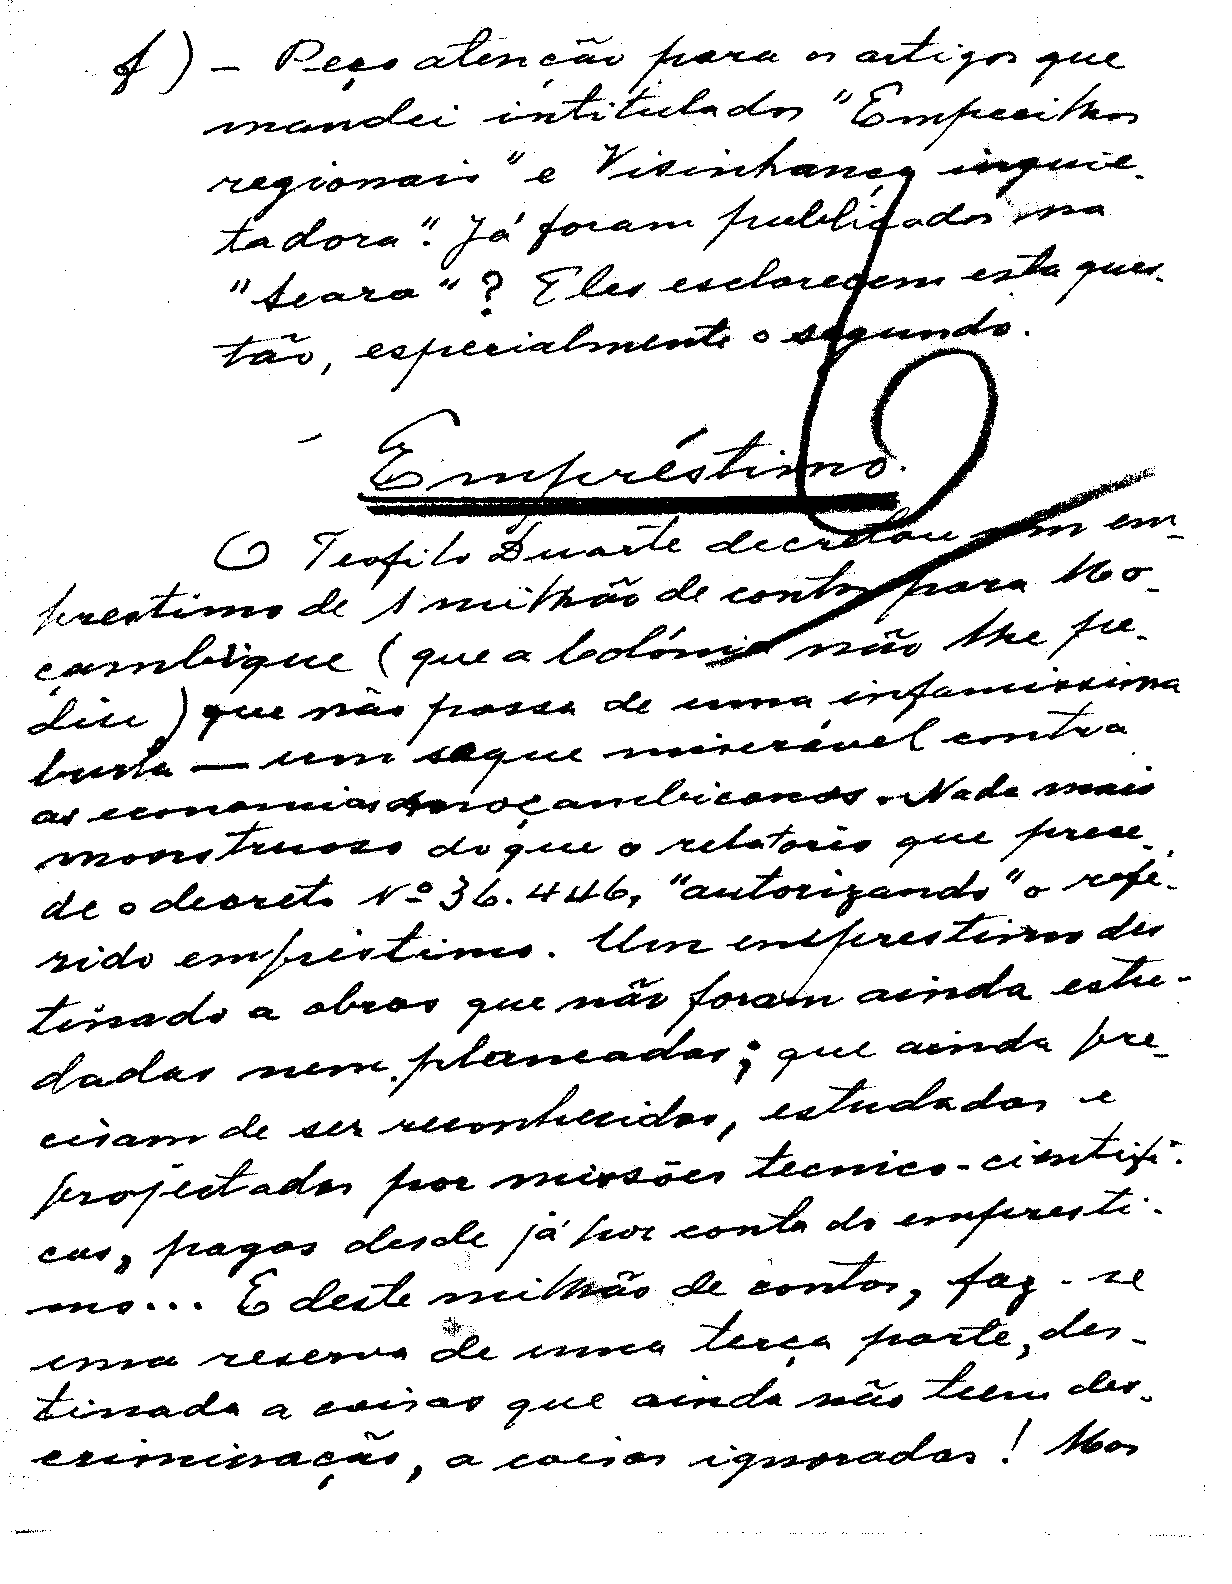 f) - Peço atenção para os artigos que
mandei intitulados "Empecilhos
regionais" e Visinhança inquie-
tadora". Já foram publicados na
"Seara"? Eles esclarecem esta ques-
tão, especialmente o segundo.
Empréstimo.
O Teofilo Duarte decretou um em-
prestimo de 1 milhão de contos para Mo-
çambique (que a Colónia não lhe pe-
diu) que não passa de uma infamissima
burla — um saque miserável contra
as economias moçambicanas. Nada mais
monstruoso do que o relatorio que prece-
de o decreto Nº 36.446, "autorizando" o refe-
rido empréstimo. Um emprestimo des
tinado a obras que não foram ainda estu-
dadas nem planeadas; que ainda pre-
cisam de ser reconhecidas, estudadas e
projectadas por missões tecnico-cientifi-
cas, pagas desde já por conta do empresti-
mo... E deste milhão de contos, faz-se
uma reserva de uma terça parte, des-
tinada a coisas que ainda não teem des-
criminação, a coisas ignoradas! Mas